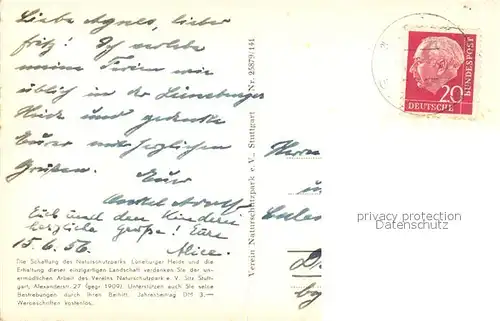 Liebe Agnes, lieber
Fritz! Ich verlebe
meine Ferien wie
üblich in der Lüneburger
Heide und gedenke
Eurer mit herzlichen
Grüßen. Euer
Onkel Adolf
Euch und den Kindern
herzliche Grüße! Eure
15.6.56 Alice.
Die Schaffung des Naturschutzparks Lüneburger Heide und die
Erhaltung dieser einzigartigen Landschaft verdanken Sie der un-
ermüdlichen Arbeit des Vereins Naturschutzpark e. V. Sitz Stutt-
gart, Alexanderstr. 27 (gegr. 1909). Unterstützen auch Sie seine
Bestrebungen durch Ihren Beitritt. Jahresbeitrag DM 3.—
Werbeschriften kostenlos.
Verein Naturschutzpark e.V., Stuttgart Nr. 25879/141
DEUTSCHE
BUNDESPOST
20
Herrn
privacy protection
Datenschutz